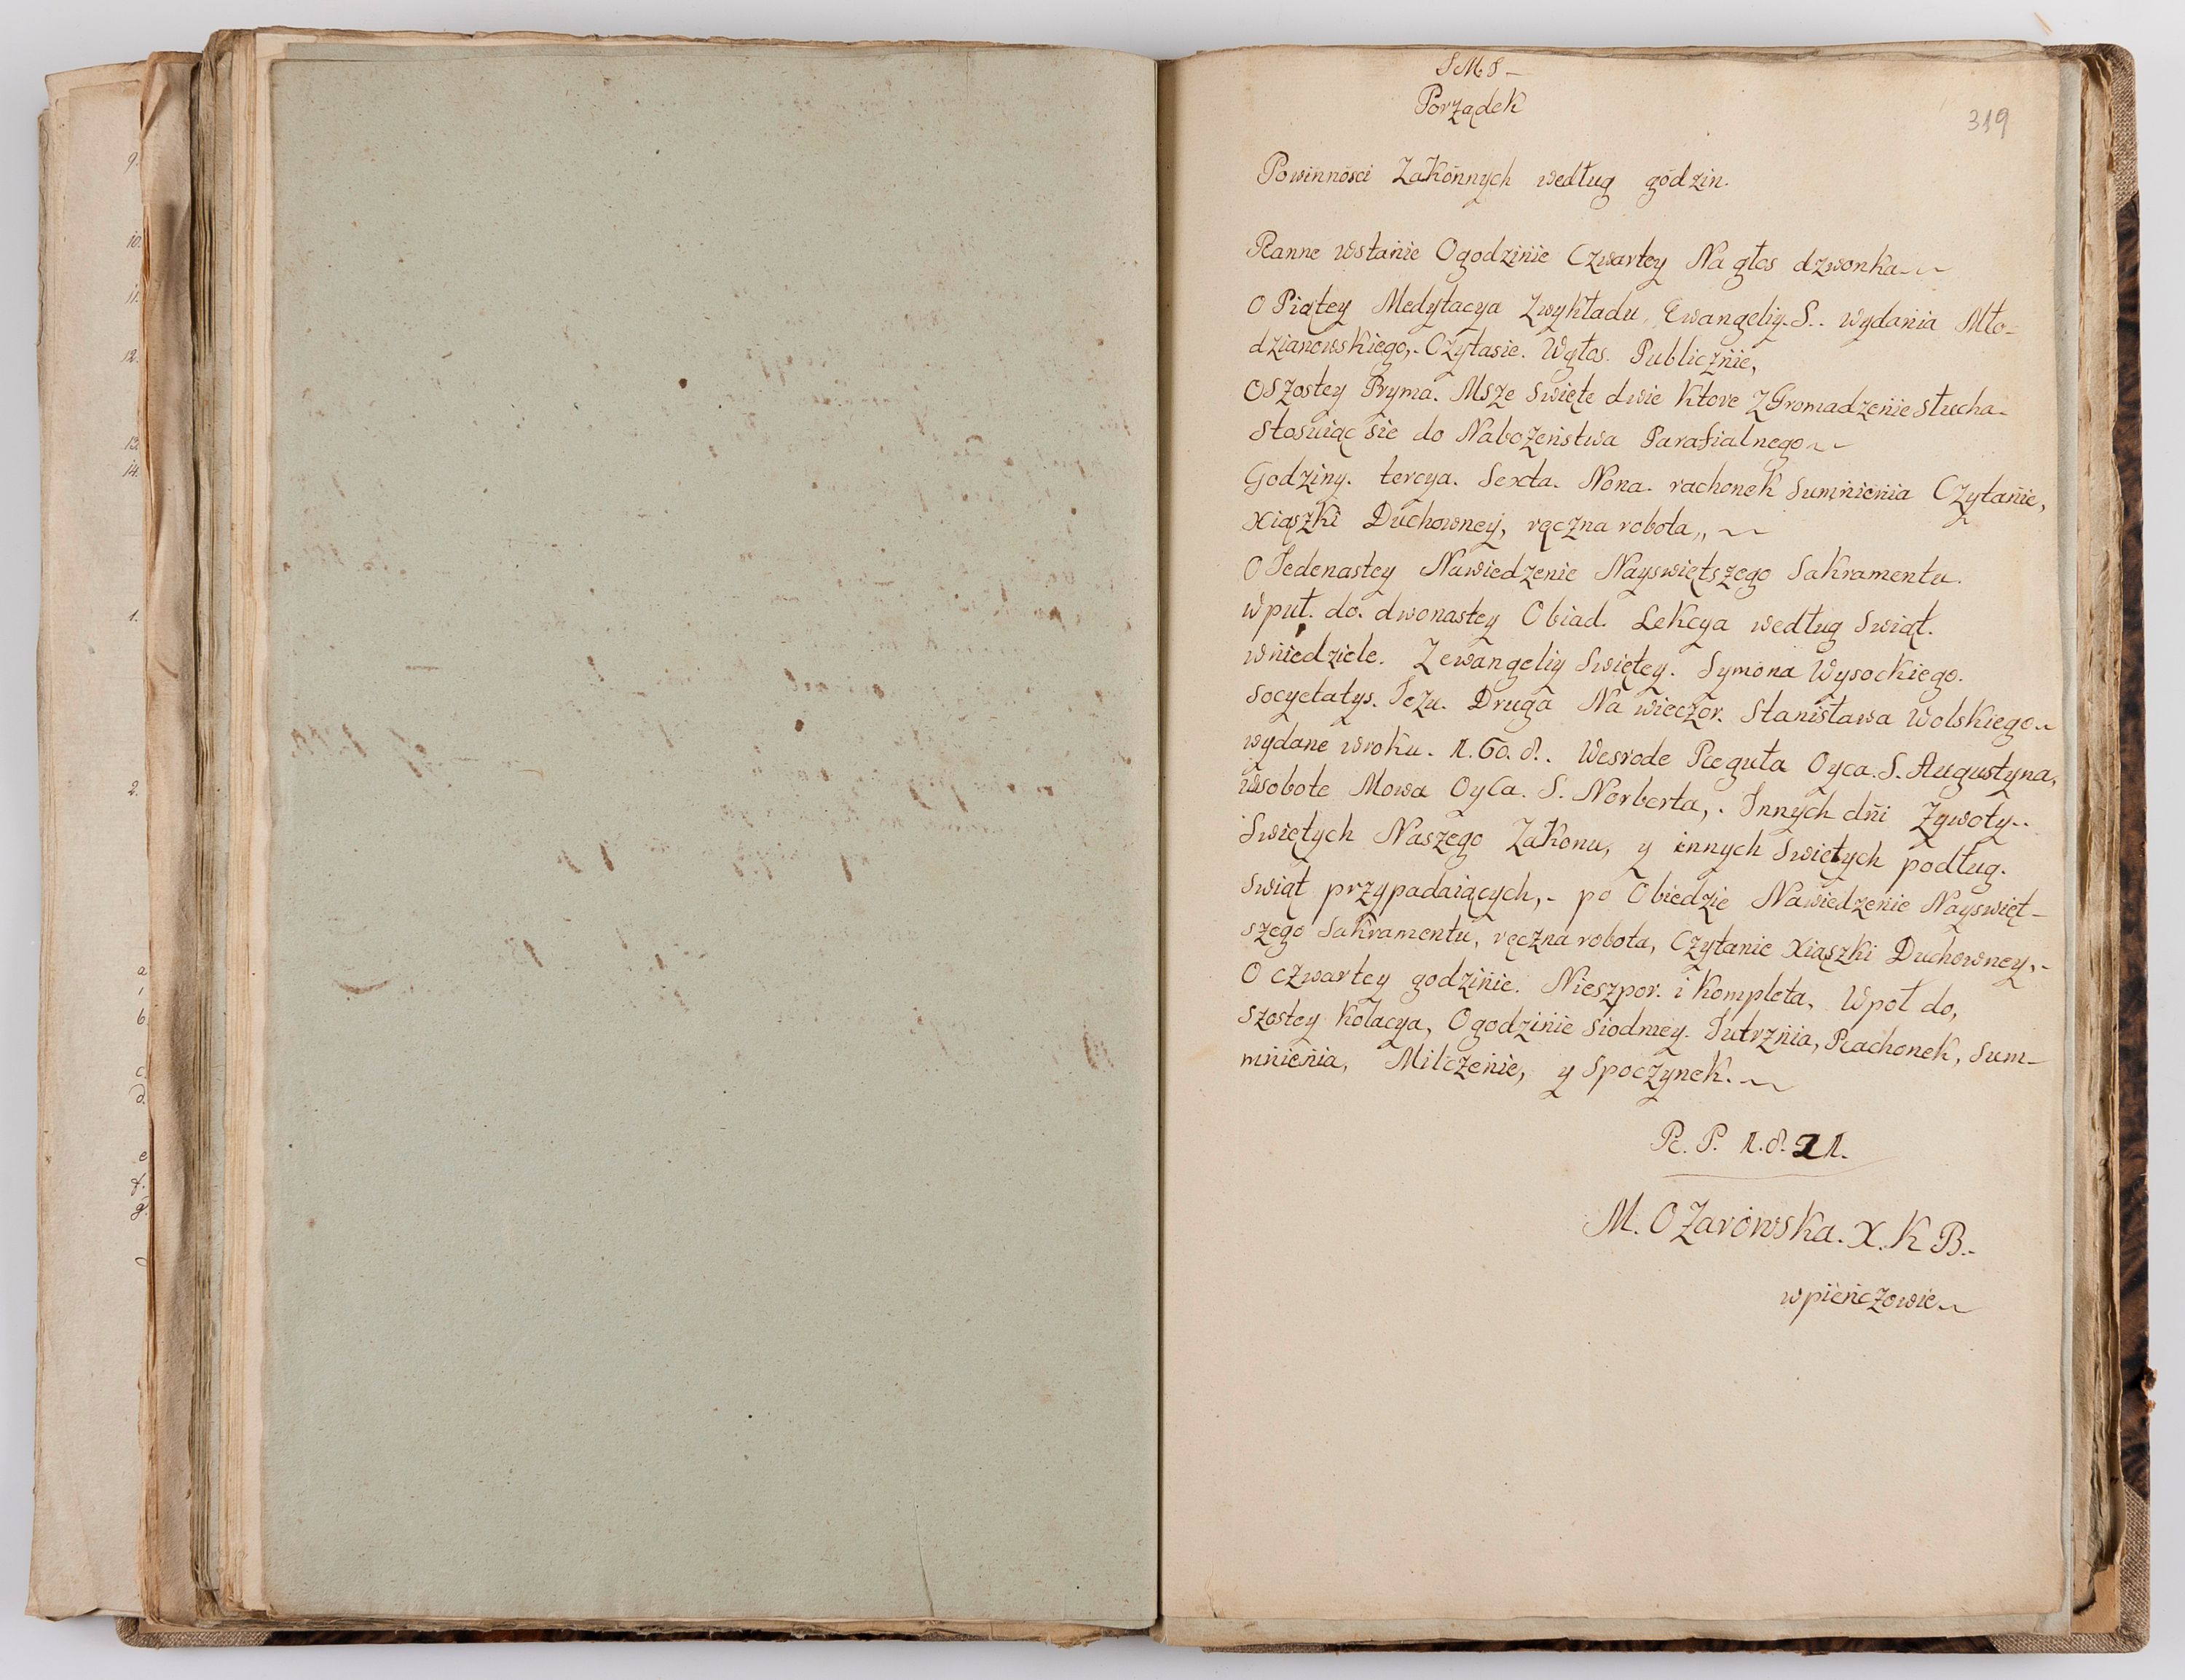 9.
10.
11.
12.
13.
14.
1.
2.
a
b
c.
d.
e
f.
g.
J M J –
Porządek
319
Powinnosci Zakonnych według godzin.
Ranne wstanie Ogodzinie Czwartey Na głos dzwonka
O Piątey Medytacya Zwykładu, Ewangeliy. S.. wydania Mło-
dzianowskiego,. Czytasie. Wgłos. Publicznie,
Oszostey Pryma. Msze swięte dwie ktore ZGromadzenie słucha.
stosuiąc sie do Nabozenstwa Parafialnego
Godziny. tercya. Sexta. Nona. rachonek Sumnienia Czytanie,
xiąszki Duchowney, ręczna robota,,
O Jedenastey Nawiedzenie Nayswiętszego Sakramentu.
wpuł. do. dwonastey Obiad. Lekcya według Swiąt.
wniedziele. Zewangeliy Swiętey. Symona Wysockiego.
socyetatys. Jezu. Druga Na wieczor. Stanisława Wolskiego
wydane wroku. 1.60.8.. Wesrode Reguła Oyca. S. Augustyna,
wsobote Mowa Oyca. S. Norberta,. Innych dni Zywoty..
Swiętych Naszego Zakonu, y innych Swiętych podług.
Swiąt przypadaiących,. po Obiedzie Nawiedzenie Nayswięt-
szego Sakramentu, ręczna robota, Czytanie Xiąszki Duchowney,.
O czwartey godzinie. Nieszpor. i Kompleta, Wpoł do,
szostey Kolacya, Ogodzinie siodmey. Jutrznia, Rachonek, Sum-
mnienia, Milczenie, y Spoczynek.
R. P. 1.8.21.
M. OZarowska. X. K B..
wpienczowie